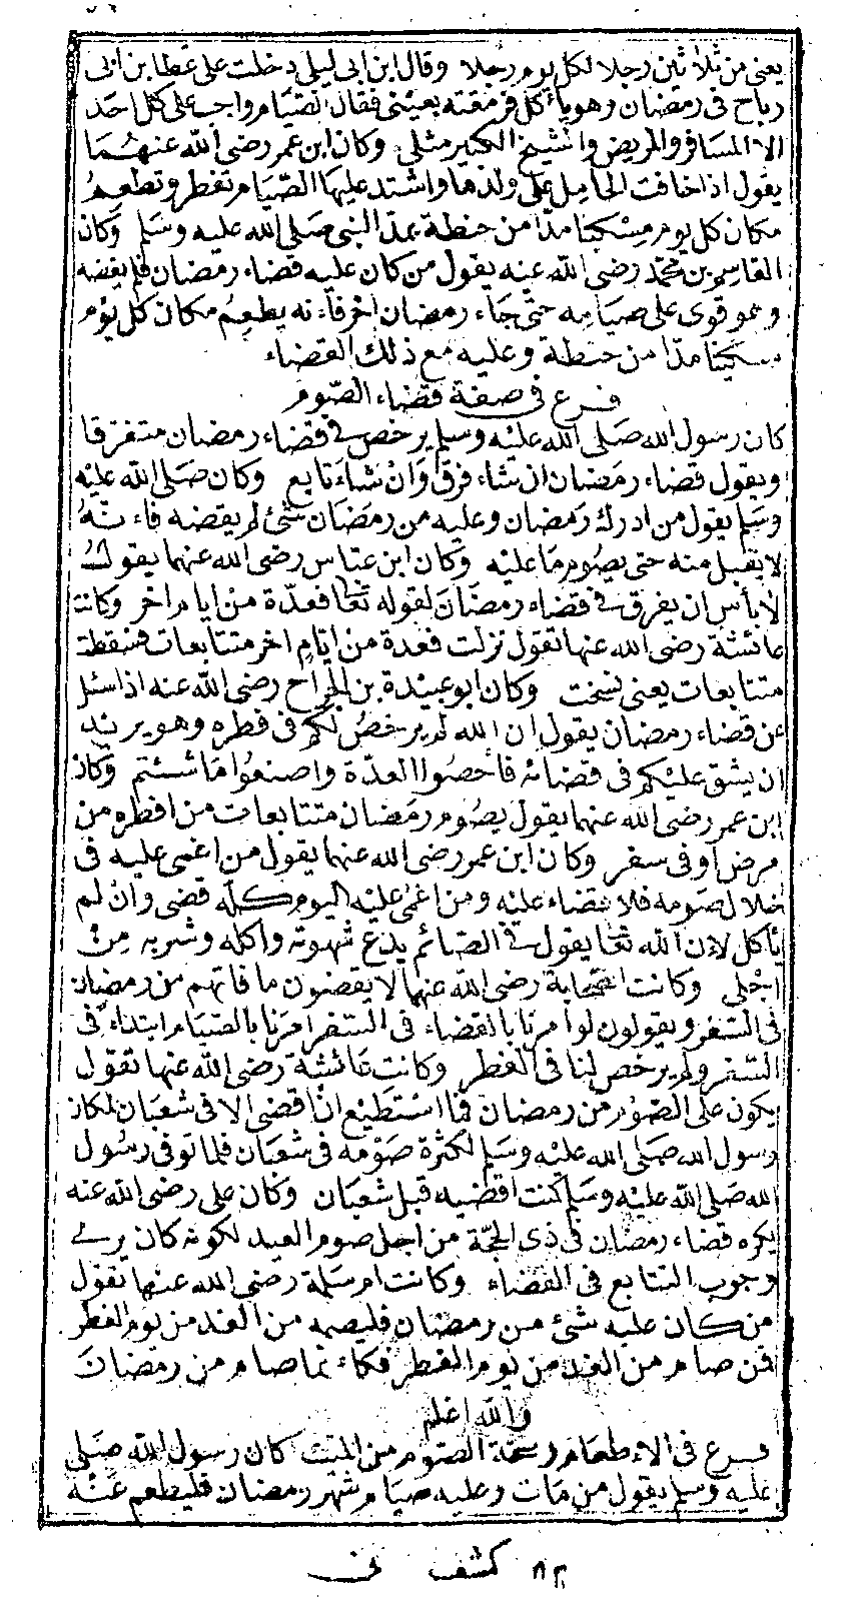 يعنى من ثلاثين رجلا لكل يوم رجلا وقال ابن ابى ليلى دخلت على عطا بن ابى
رباح فى رمضان وهو يأكل فرمقته بعينى فقال الصيام واجب على كل احد
الا المسافر والمريض والشيخ الكبير مثلى وكان ابن عمر رضى الله عنهما
يقول اذا خافت الحامل على ولدها واشتد عليها الصيام تفطر وتطعم
مكان كل يوم مسكينا مدا من حنطة بمد النبى صلى الله عليه وسلم وكان
القاسم بن محمد رضى الله عنه يقول من كان عليه قضاء رمضان فلم يقضه
وهو قوى على صيامه حتى جاء رمضان اخر فاءنه يطعم مكان كل يوم
مسكينا مدا من حنطة وعليه مع ذلك القضاء
فرع فى صفة قضاء الصوم
كان رسول الله صلى الله عليه وسلم يرخص فى قضاء رمضان متفرقا
ويقول قضاء رمضان ان شاء فرق وان شاء تابع وكان صلى الله عليه
وسلم يقول من ادرك رمضان وعليه من رمضان شئ لم يقضه فاءنه
لا يقبل منه حتى يصوم ما عليه وكان ابن عباس رضى الله عنهما يقول
لا بأس ان يفرق فى قضاء رمضان لقوله تعا فعدة من ايام اخر وكانت
عائشة رضى الله عنها تقول نزلت فعدة من ايام اخر متتابعات فسقطت
متتابعات يعنى نسخت وكان ابو عبيدة بن الجراح رضى الله عنه اذا سئل
عن قضاء رمضان يقول ان الله لم يرخص لكم فى فطره وهو يريد
ان يشق عليكم فى قضائه فأحصوا العدة واصنعوا ما شئتم وكان
ابن عمر رضى الله عنهما يقول يصوم رمضان متتابعات من افطره من
مرض او فى سفر وكان ابن عمر رضى الله عنهما يقول من اغمى عليه فى
خلال صومه فلا قضاء عليه ومن اغمى عليه اليوم كله قضى وان لم
يأكل لاءن الله تعا يقول فى الصائم يدع شهوته واكله وشربه من
اجلى وكانت الصحابة رضى الله عنهم لا يقضون ما فاتهم من رمضان
فى السفر ويقولون لو امرنا بالقضاء فى السفر امرنا بالصيام ابتداء فى
السفر ولم يرخص لنا فى الفطر وكانت عائشة رضى الله عنها تقول
يكون على الصوم من رمضان فما استطيع ان اقضى الا فى شعبان لمكان
رسول الله صلى الله عليه وسلم لكثرة صومه فى شعبان فلما توفى رسول
الله صلى الله عليه وسلم كنت اقضيه قبل شعبان وكان على رضى الله عنه
يكره قضاء رمضان فى ذى الحجة من اجل صوم العيد لكونه كان يرى
وجوب التتابع فى القضاء وكانت ام سلمة رضى الله عنها تقول
من كان عليه شئ من رمضان فليصمه من الغد من يوم الفطر
فمن صام من الغد من يوم الفطر فكاءنما صام من رمضان
والله اعلم
فرع فى الاءطعام وصحة الصوم من الميت كان رسول الله صلى
عليه وسلم يقول من مات وعليه صيام شهر رمضان فليطعم عنه
كشف